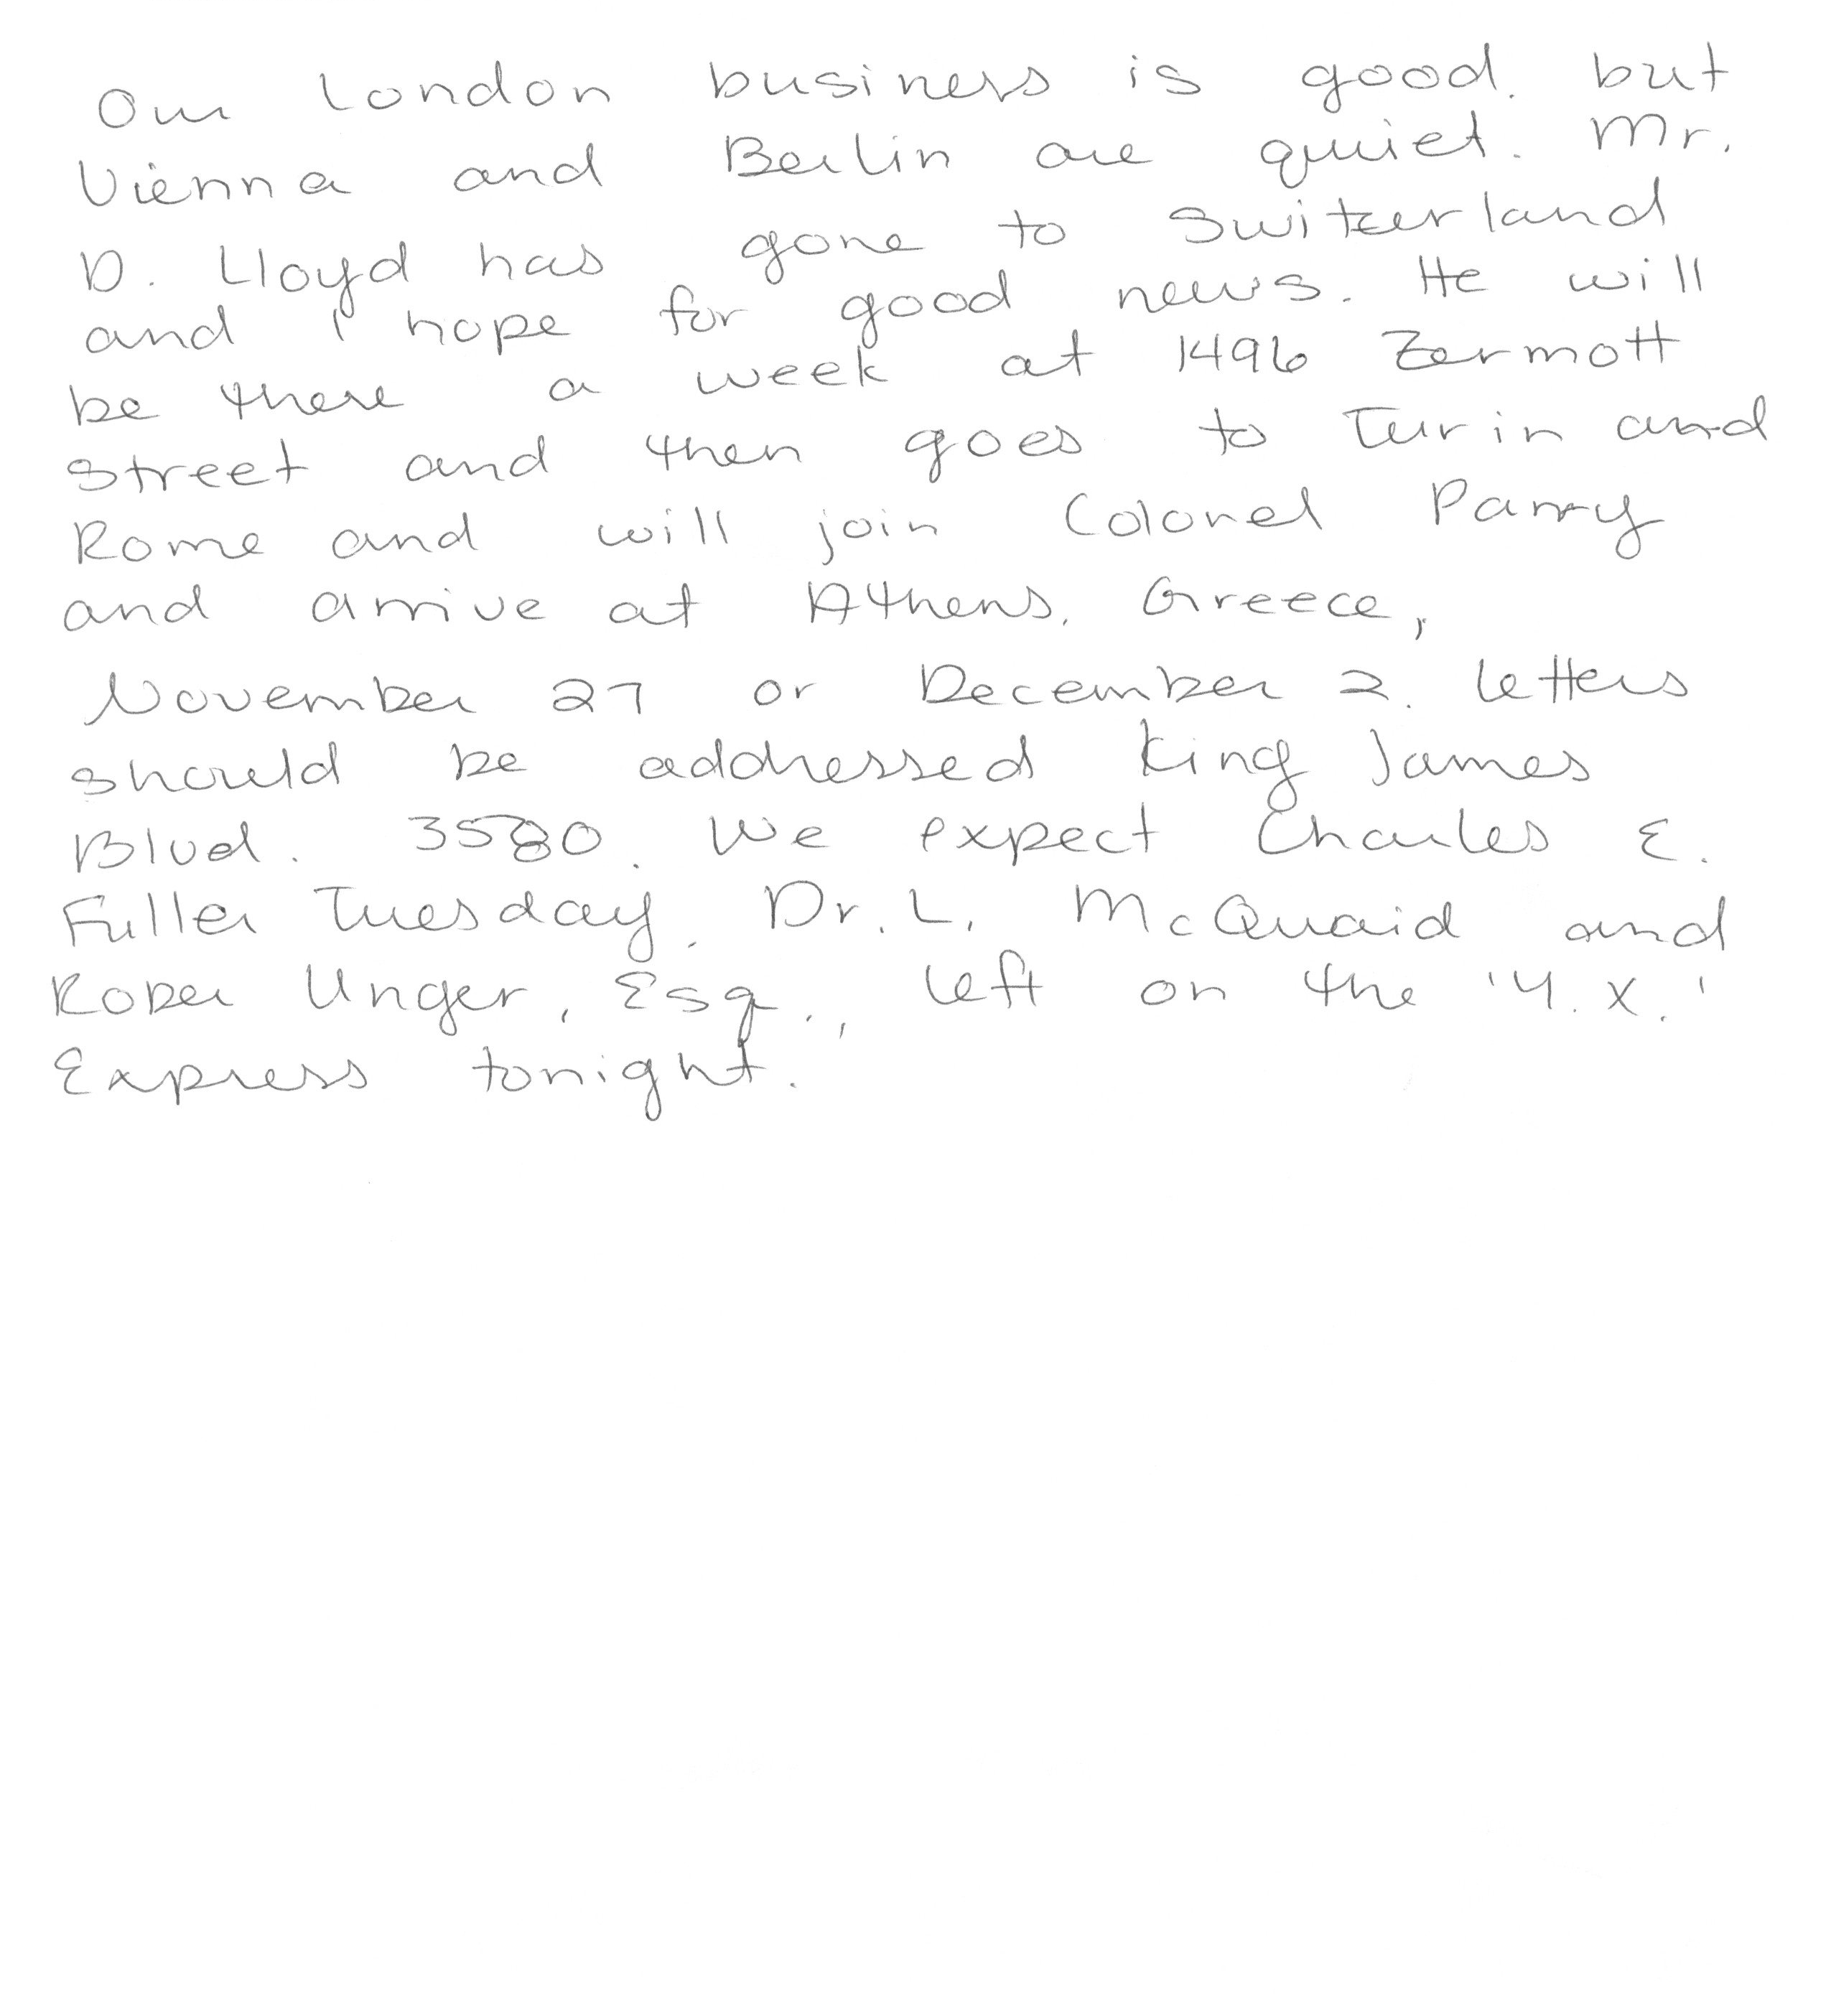 Our London business is good, but
Vienna and Berlin are quiet. Mr.
D. Lloyd has gone to Switzerland
and I hope for good news. He will
be there a week at 1496 Zermott
Street and then goes to Turin and
Rome and will join Colonel Parry
and arrive at Athens, Greece,
November 27 or December 2. Letters
should be addressed King James
Blvd. 3580. We expect Charles E.
Fuller Tuesday. Dr. L. McQuaid and
Rober Unger, Esq., left on the 'Y.X.'
Express tonight.